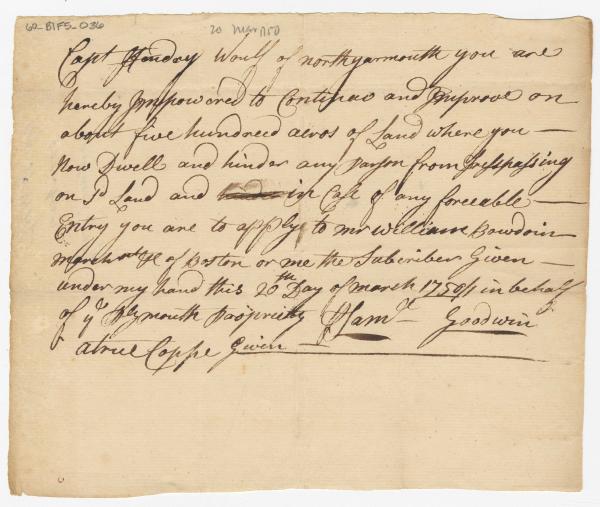 60-B1F5-036
20 Mar 1750
Capt Henday Woulf of northyarmouth you are
hereby Impowared to Continac and Improve on
about five hundreed acros of Land where you —
Now Dwell and hinder any parson from Trespassing
on sd Land and in Case of any forceable —
Entry you are to apply to mr William Bowdoin
march of Boston or me the Subcriber Given —
under my hand this 20th Day of march 1750/1 in behalf
of ye Plymouth Propriety Saml Goodwin
a true Coppe Given